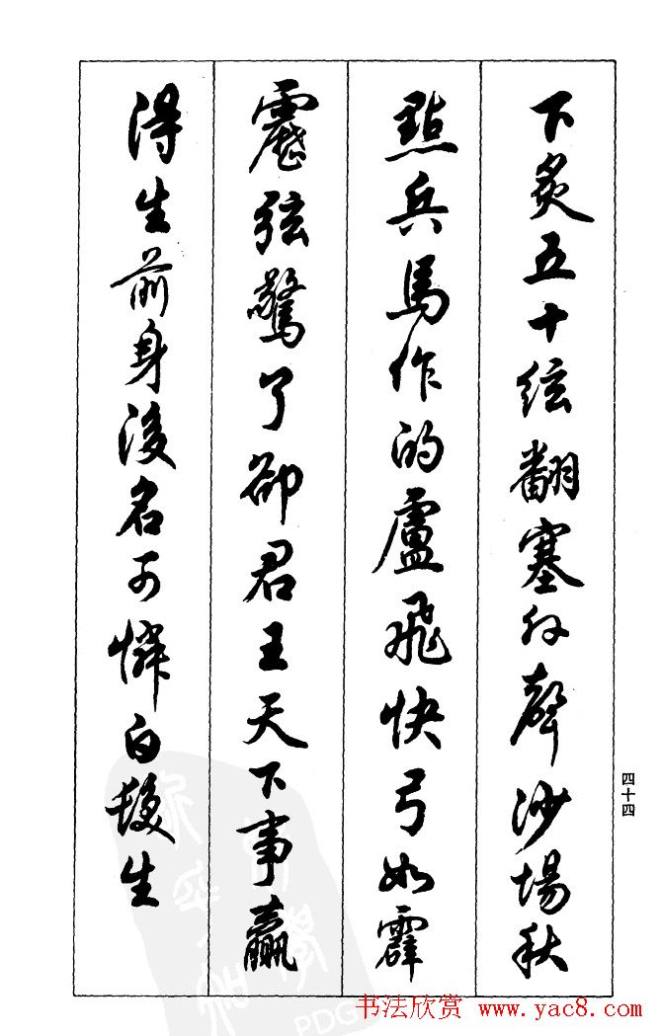 下炙五十絃翻塞外聲沙場秋
點兵馬作的盧飛快弓如霹
靂弦驚了卻君王天下事贏
得生前身後名可憐白髮生
四十四
PDG
书法欣赏 www.yac8.com